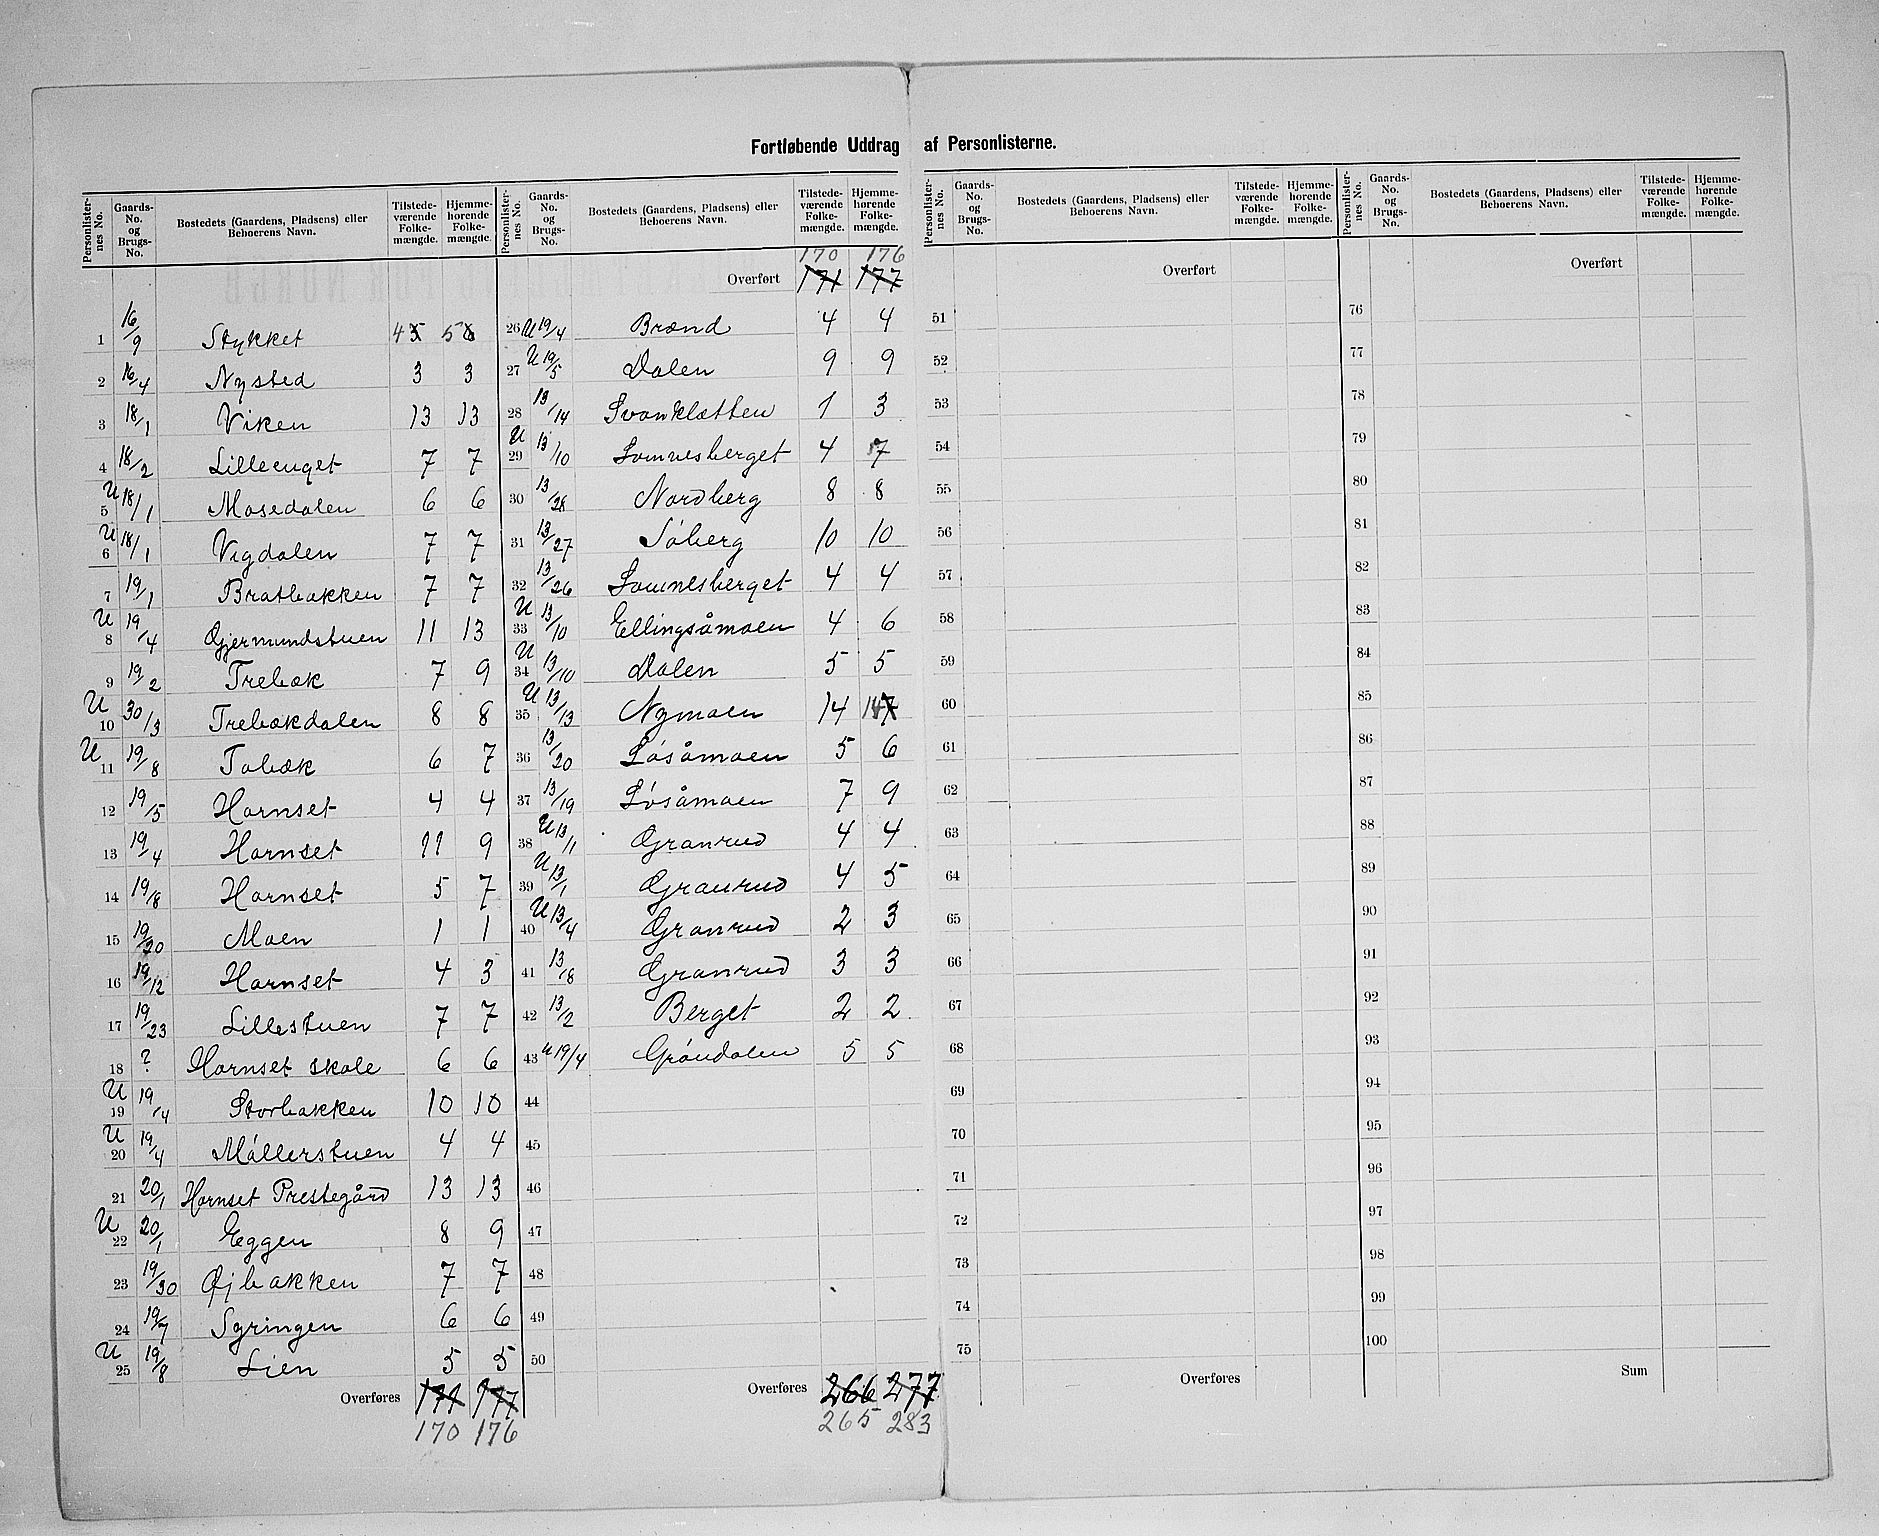 Fortløbende Uddrag af Personlisterne.
Personlisternes No. Gaards-No. og Brugs-No. Bostedets (Gaardens, Pladsens) eller Beboerens Navn. Tilstedeværende Folkemængde. Hjemmehørende Folkemængde.
1 16/9 Stykket 4 5
2 16/4 Nysted 3 3
3 18/1 Viken 13 13
4 18/2 Lilleenget 7 7
U 5 18/1 Mosedalen 6 6
U 6 18/1 Vigdalen 7 7
7 19/1 Bratbakken 7 7
U 8 19/4 Gjermundstuen 11 13
9 19/2 Trebæk 7 9
U 10 30/13 Trebækdalen 8 8
U 11 19/8 Tobæk 6 7
12 19/5 Hornset 4 4
13 19/4 Hornset 11 9
14 19/8 Hornset 5 7
15 19/30 Moen 1 1
16 19/12 Hornset 4 3
17 19/23 Lillestuen 7 7
18 ? Hornset skole 6 6
U 19 19/4 Storbakken 10 10
U 20 19/4 Møllerstuen 4 4
21 20/1 Hornset Prestegård 13 13
U 22 20/1 Eggen 8 9
23 19/30 Øjbakken 7 7
24 19/7 Syringen 6 6
U 25 19/8 Lien 5 5
Overføres 171 177
170 176
Personlisternes No. Gaards-No. og Brugs-No. Bostedets (Gaardens, Pladsens) eller Beboerens Navn. Tilstedeværende Folkemængde. Hjemmehørende Folkemængde.
170 176
Overført 171 177
26 U 19/4 Brænd 4 4
27 U 19/5 Dalen 9 9
28 13/14 Svanklætten 1 3
U 29 13/10 Lomnesberget 4 7
30 13/28 Nordberg 8 8
31 13/27 Søberg 10 10
32 13/26 Lomnesberget 4 4
U 33 13/10 Ellingsåmoen 4 6
U 34 13/10 Dalen 5 5
U 35 13/13 Nymoen 14 14
36 13/20 Løsåmoen 5 6
37 13/19 Løsåmoen 7 9
38 U 13/11 Granrud 4 4
39 U 13/1 Granrud 4 5
40 U 13/4 Granrud 2 3
41 13/18 Granrud 3 3
42 13/2 Berget 2 2
43 U 19/4 Grøndalen 5 5
44
45
46
47
48
49
50
Overføres 266 277
265 283
Personlisternes No. Gaards-No. og Brugs-No. Bostedets (Gaardens, Pladsens) eller Beboerens Navn. Tilstedeværende Folkemængde. Hjemmehørende Folkemængde.
Overført
51
52
53
54
55
56
57
58
59
60
61
62
63
64
65
66
67
68
69
70
71
72
73
74
75
Overføres
Personlisternes No. Gaards-No. og Brugs-No. Bostedets (Gaardens, Pladsens) eller Beboerens Navn. Tilstedeværende Folkemængde. Hjemmehørende Folkemængde.
Overført
76
77
78
79
80
81
82
83
84
85
86
87
88
89
90
91
92
93
94
95
96
97
98
99
100
Sum